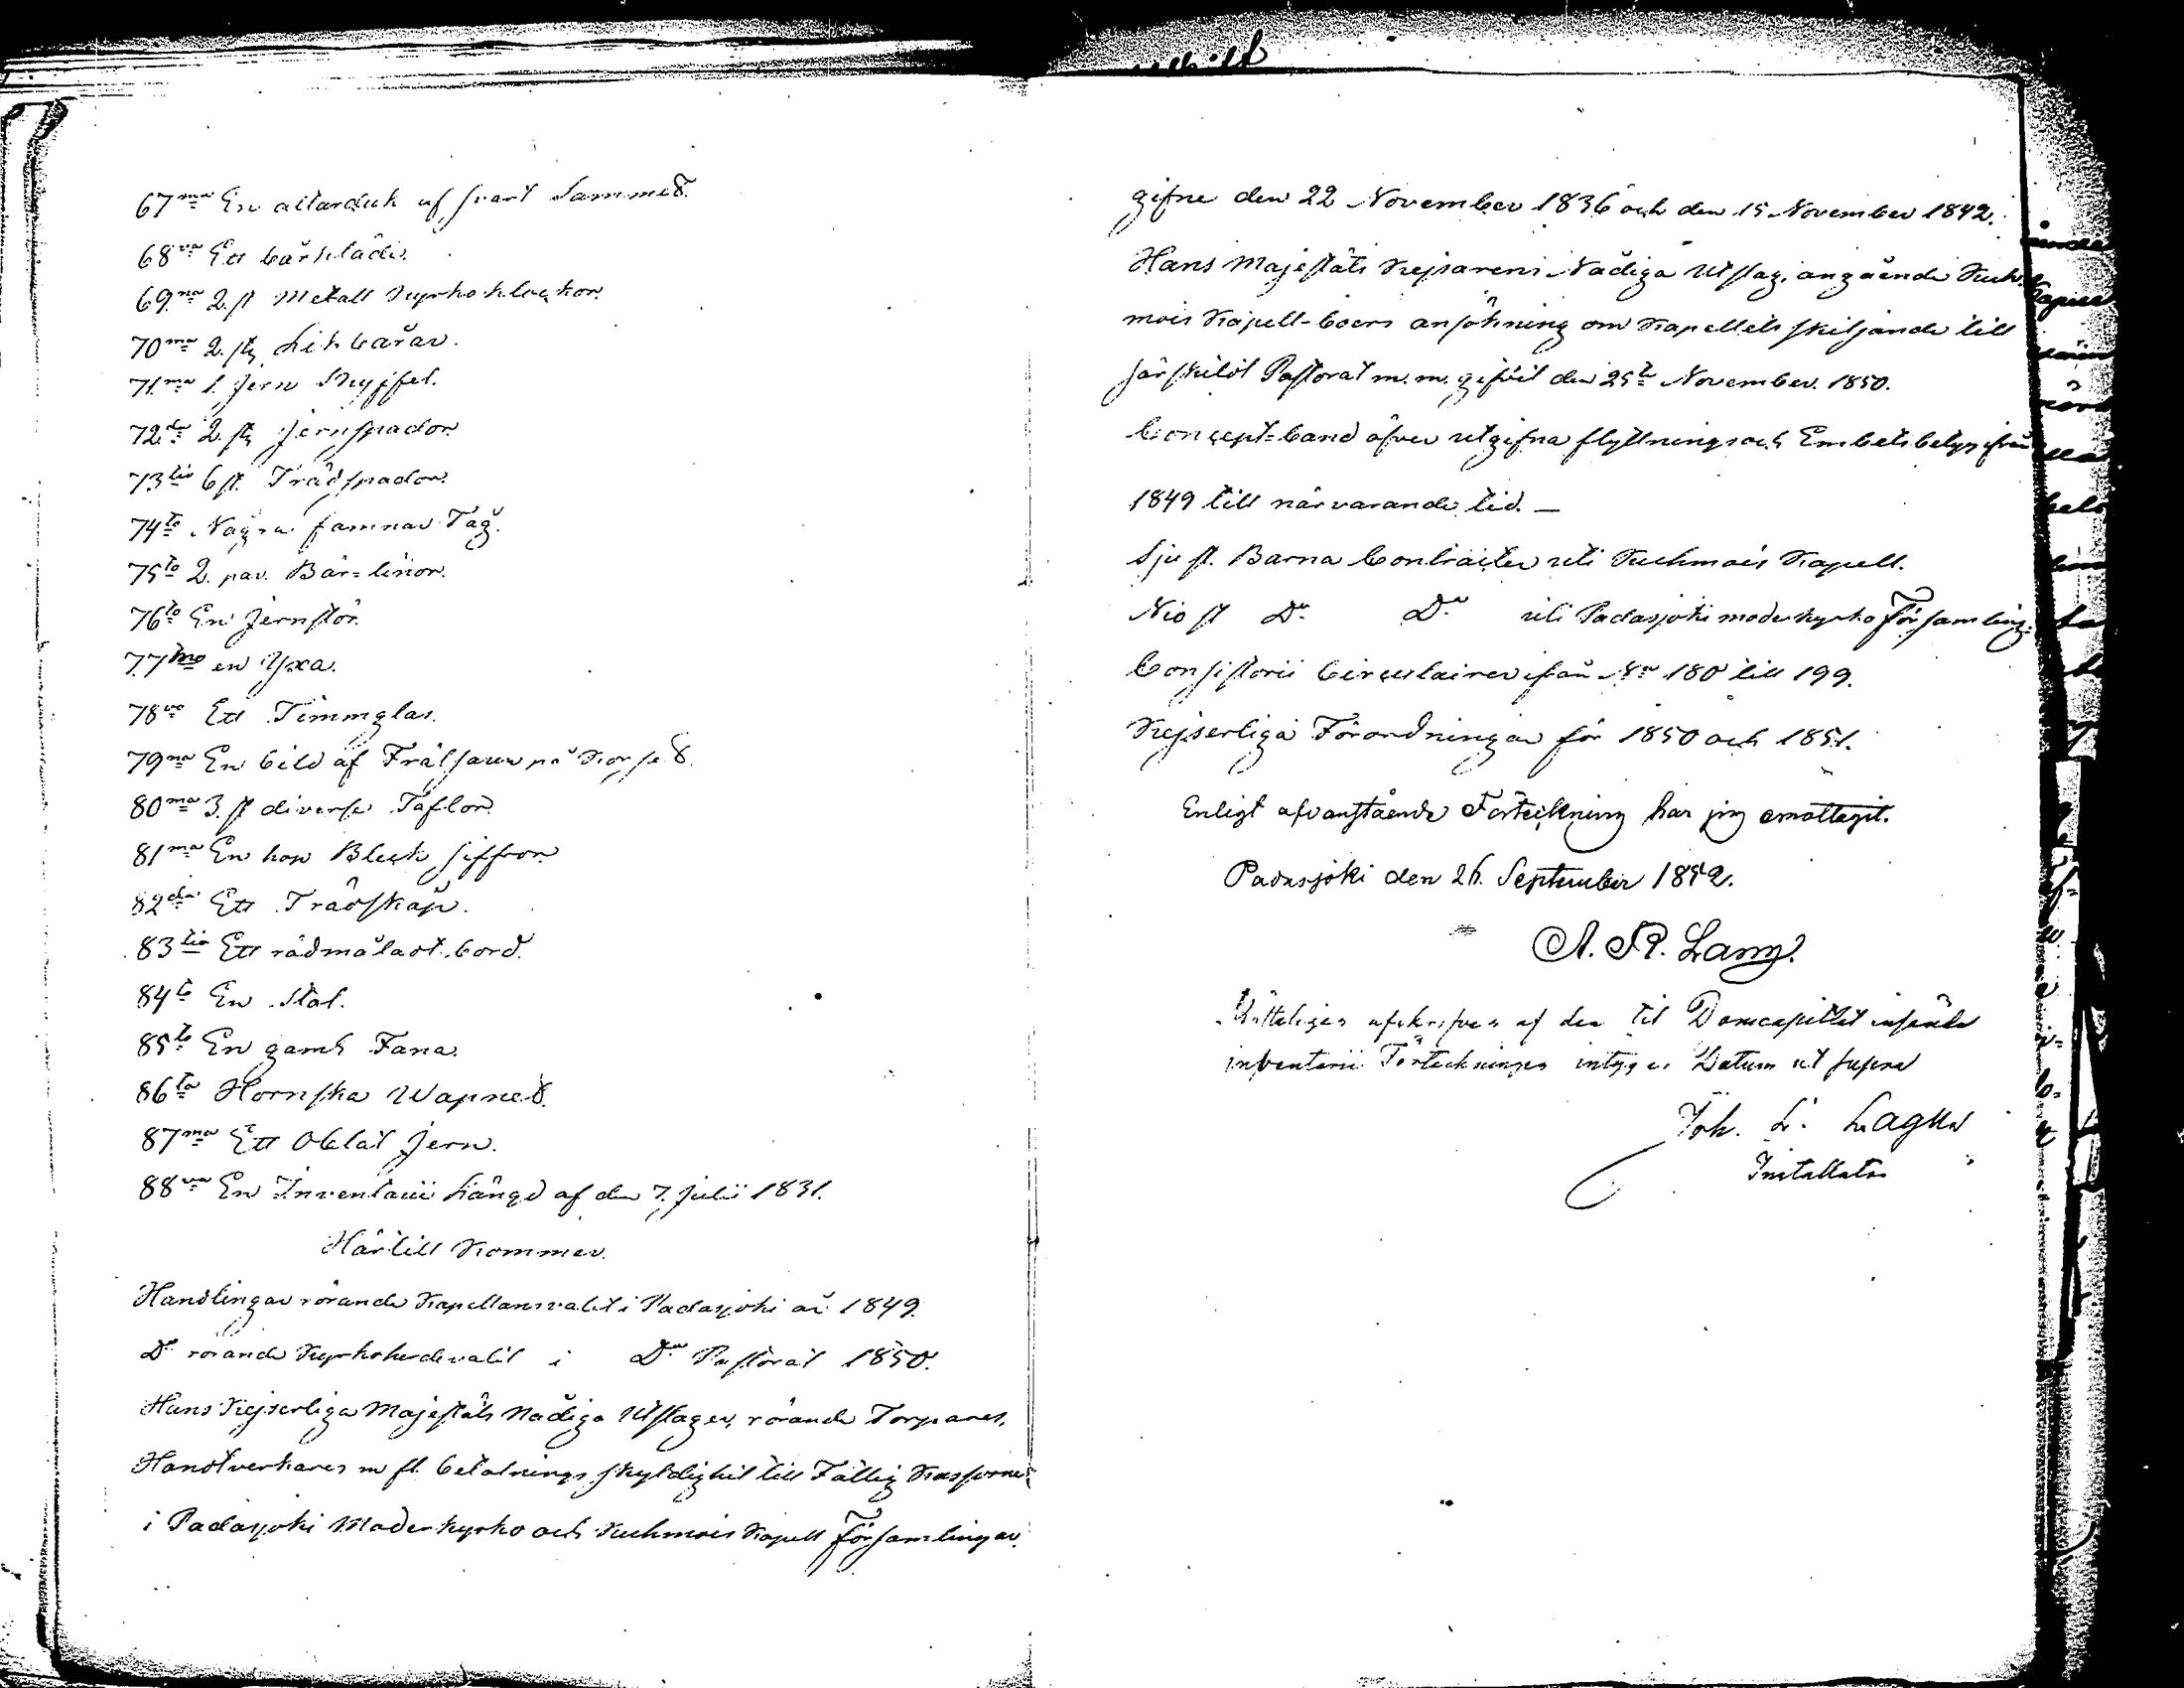 67ma En altarduk af svart Sammet.
68va Ett bårkläde.
69na 2. st Metall Kyrko klockor.
70ma 2. st Likbårar.
71ma 1. Jern Skyffel.
72da 2. st Jernspador.
73tia 6 st. Trädspador.
74ta Några famnar Tåg.
75ta 2. par. Bår-linor.
76ta En Jernstör.
77ma en Yxa.
78va Ett Timmglas.
79na En bild af Frälsaren på Korset.
80ma 3. st diverse Taflor.
81ma En hop Bleck siffror.
82da Ett Trädskåp.
83tia Ett rödmåladt bord.
84ta En Stol.
85ta En gamh Fana.
86ta Hornska Wapnet.
87ma Ett Oblat Jern.
88va En Inventarii Längd af den 7. Julii 1831.
Härtill Kommer.
Handlingar rörande Kapellansvalet i Padasjoki år 1849.
Do rörande Kyrkoherdevalet i Do Pastorat 1850.
Hans Kejserliga Majestäts Nådiga Utslager, rörande Torpares,
Handtverkares m fl. betalnings skyldighet till Fattig Kassorne
i Padasjoki Moderkyrko och Kuhmois Kapell församlingar.
gifne den 22 November 1836 och den 15 November 1842.
Hans Majestäts Kejsarens Nådiga Utslag, angående Kuh-
mois Kapell-boers ansökning om Kapellets skiljande till
särskildt Pastorat m. m. gifvit den 25te November. 1850.
Concept-band öfver utgifna flyttnings och Embets betyg ifrån
1849 till närvarande tid. —
Sju st. Barna Contracter uti Kuhmois Kapell.
Nio st Do Do uti Padasjoki moderkyrko församling.
Consistorii Circulairer ifrån No 180 till 199.
Kejserliga Förordningar för 1850 och 1851.
Enligt ofvanstående Förteckning har jag emottagit.
Padasjoki den 26. September 1852.
A. R. Lang.
afskrifven af den til Domcapitlet insända
inventarii Förteckningen intygar Datum ut supra
Joh. L. Lagus
Installator